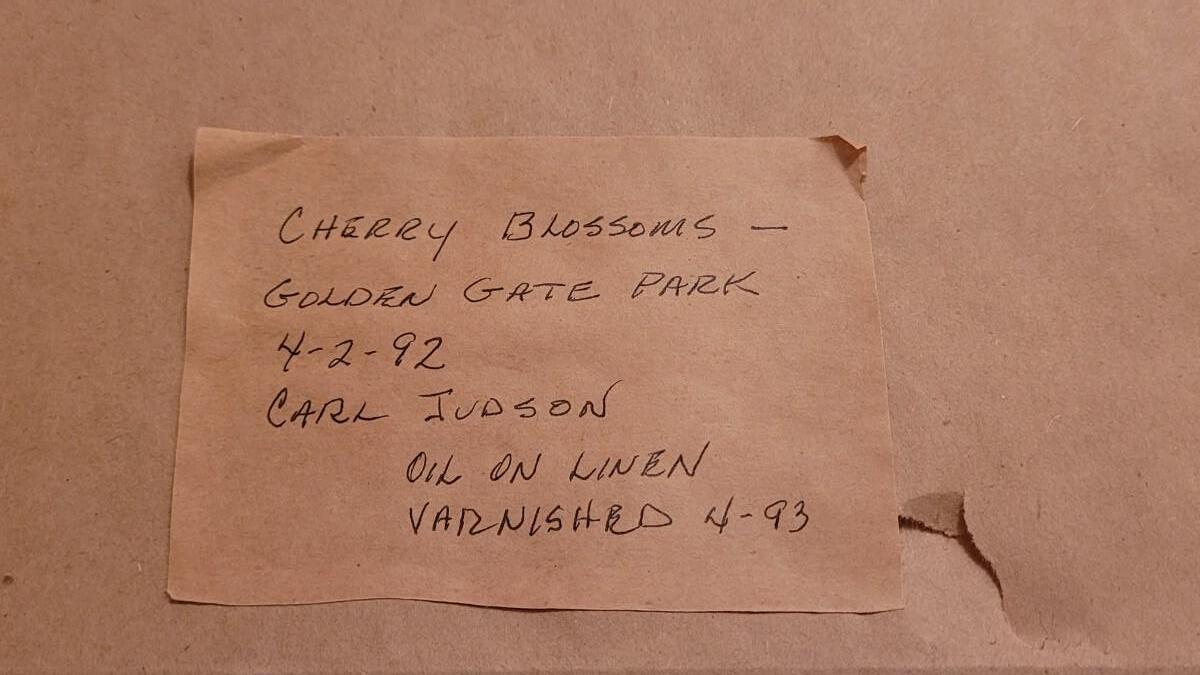 CHERRY BLOSSOMS —
GOLDEN GATE PARK
4-2-92
CARL JUDSON
OIL ON LINEN
VARNISHED 4-93